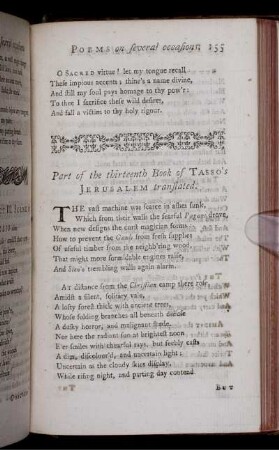 POEMS on several occasions. 155
O SACRED virtue! let my tongue recall
These impious accents; thine's a name divine,
And still my soul pays homage to thy pow'r:
To thee I sacrifice these wild desires,
And fall a victim to thy holy rigour.
Part of the thirteenth Book of TASSO's
JERUSALEM translated.
THE vast machine was scarce in ashes sunk,
Which from their walls the fearful Pagans drove,
When new designs the curst magician forms
How to prevent the Gauls from fresh supplies
Of useful timber from the neighb'ring wood,
That might more formidable engines raise,
And Sion's trembling walls again alarm.
AT distance from the Christian camp there rose
Amidst a silent, solitary vale,
A lofty forest thick with ancient trees,
Whose folding branches all beneath disclose
A dusky horror, and malignant shade,
Nor here the radiant sun at brightest noon
E'er smiles with chearful rays, but feebly casts
A dim, discolour'd, and uncertain light;
Uncertain as the cloudy skies display,
While rising night, and parting day contend
BUT